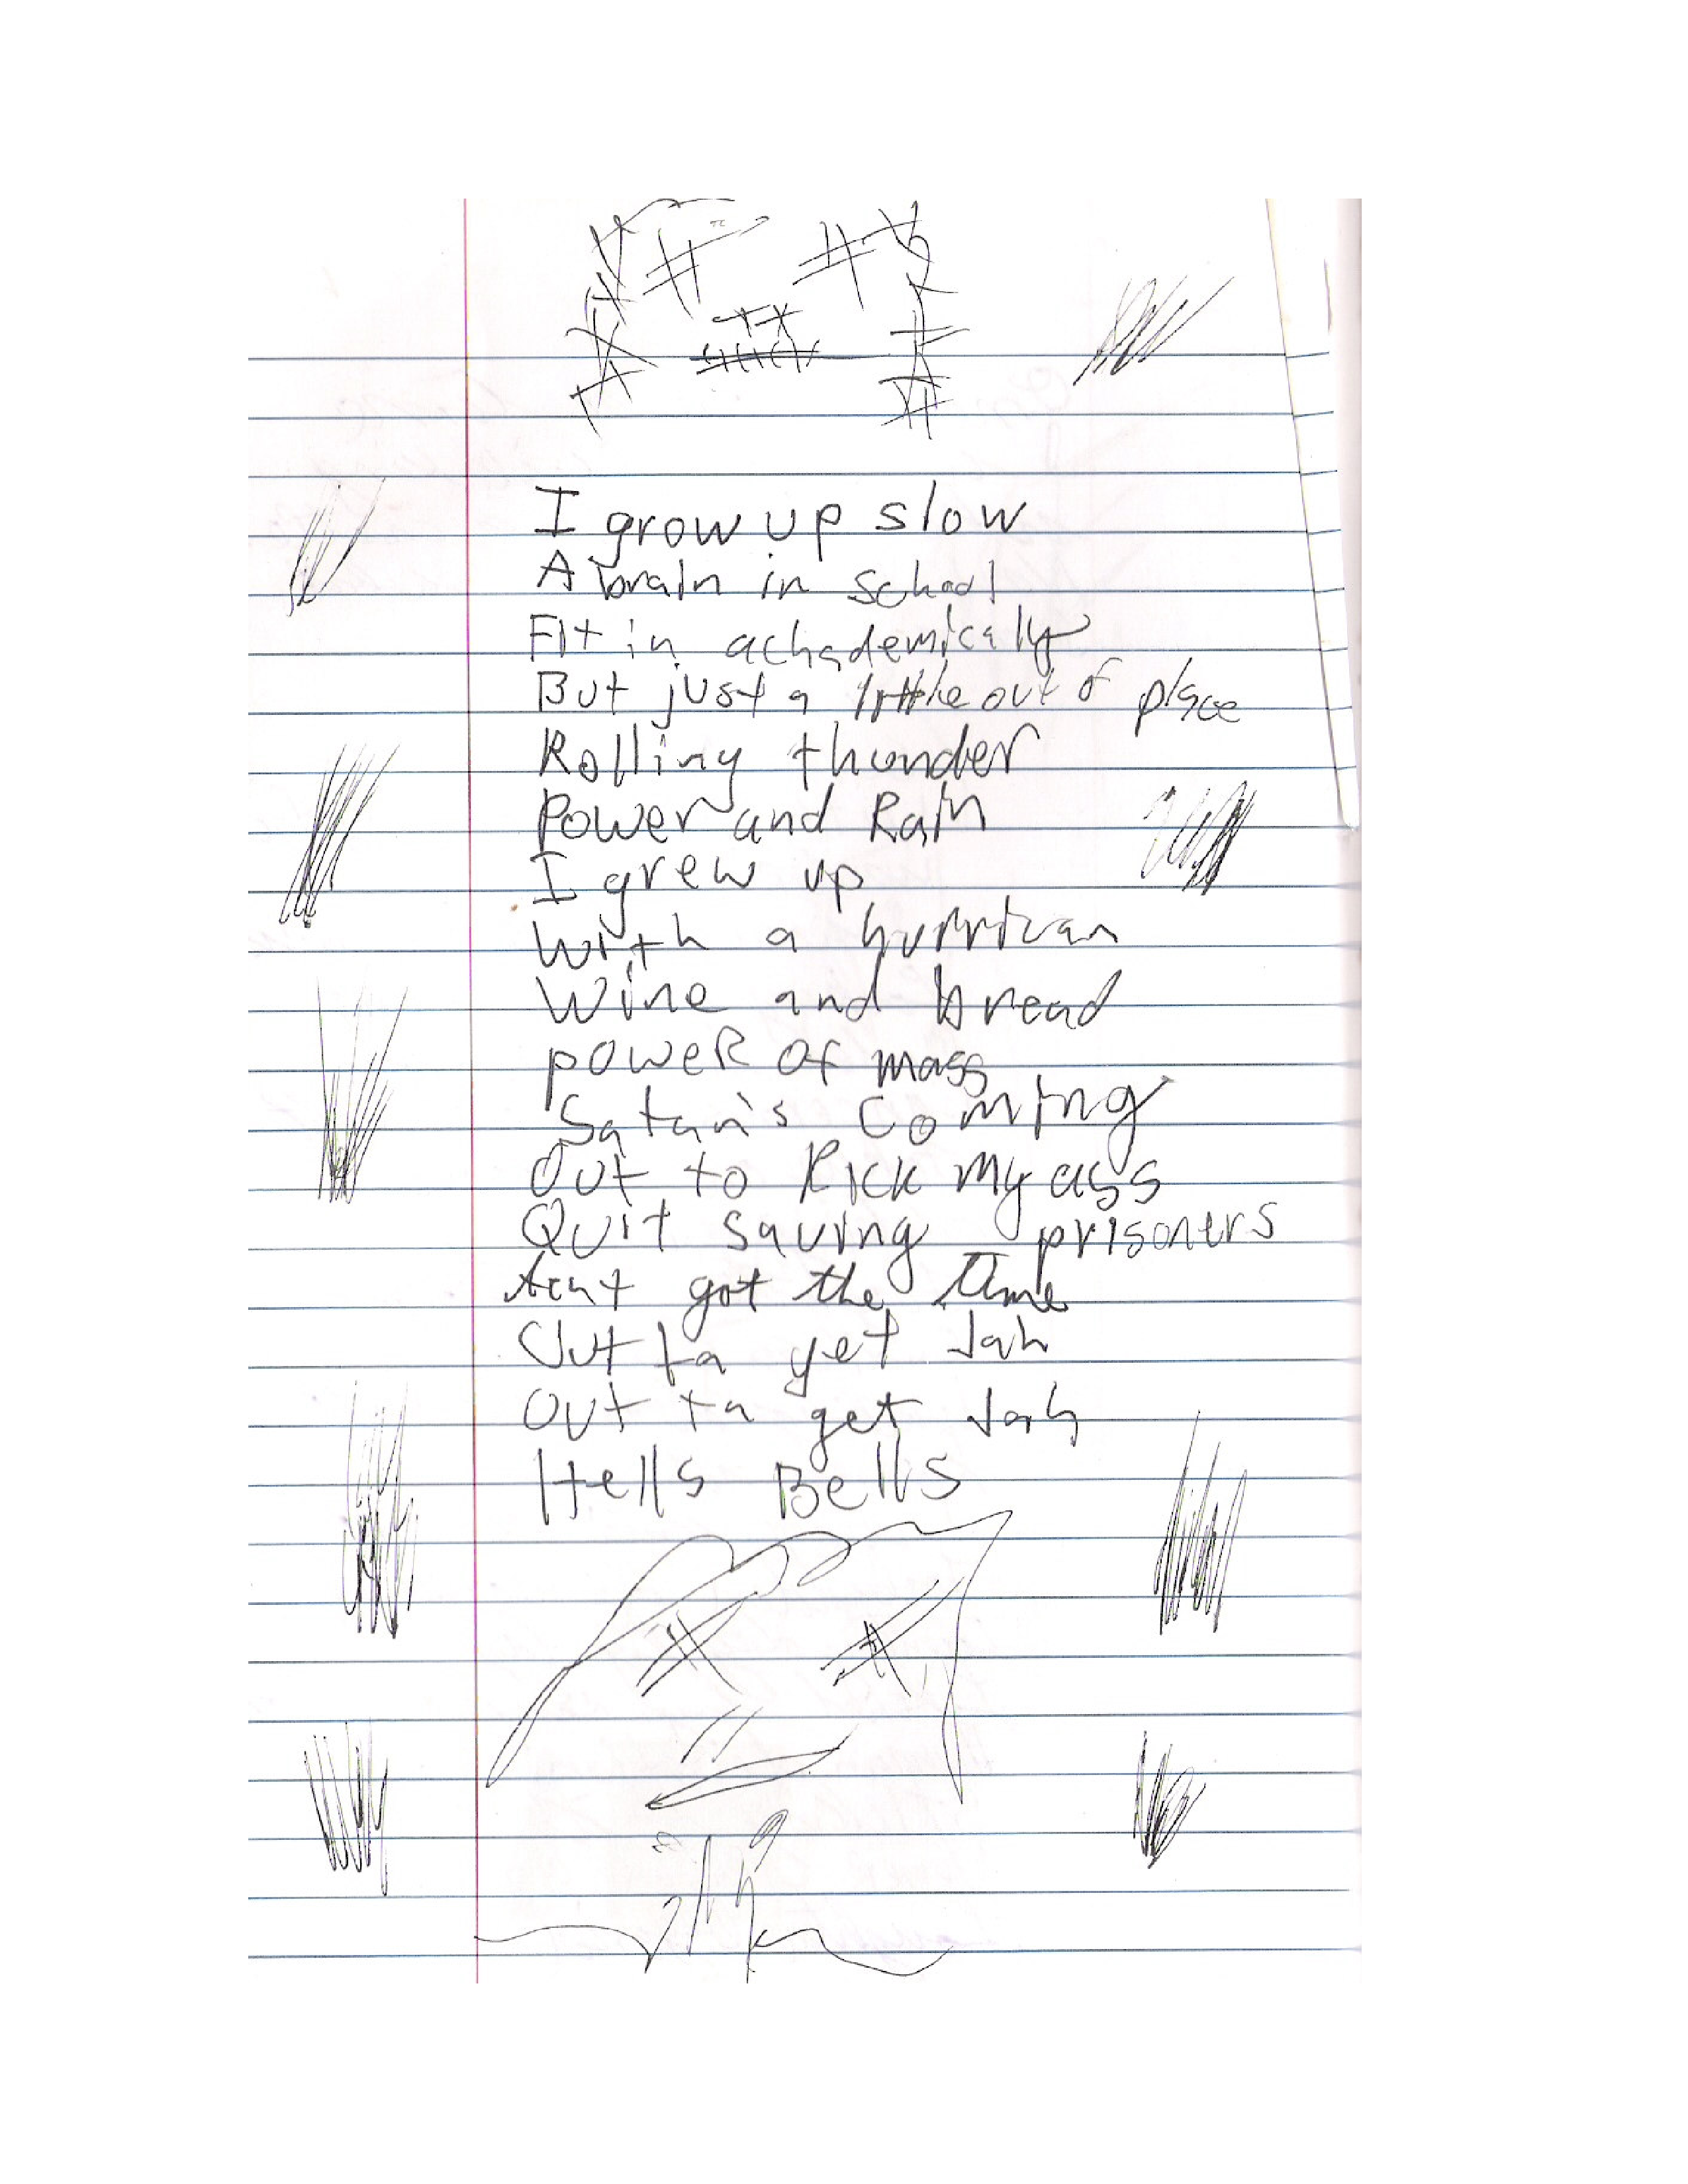 I grow up slow
A brain in school
Fit in achademically
But just a little out of place
Rolling thunder
Power and Rain
I grew up
With a hurrican
Wine and bread
power of mass
Satan's Coming
Out to Kick my ass
Quit saving prisoners
Aint got the time
Out ta get Jah
Out ta get Jah
Hells Bells